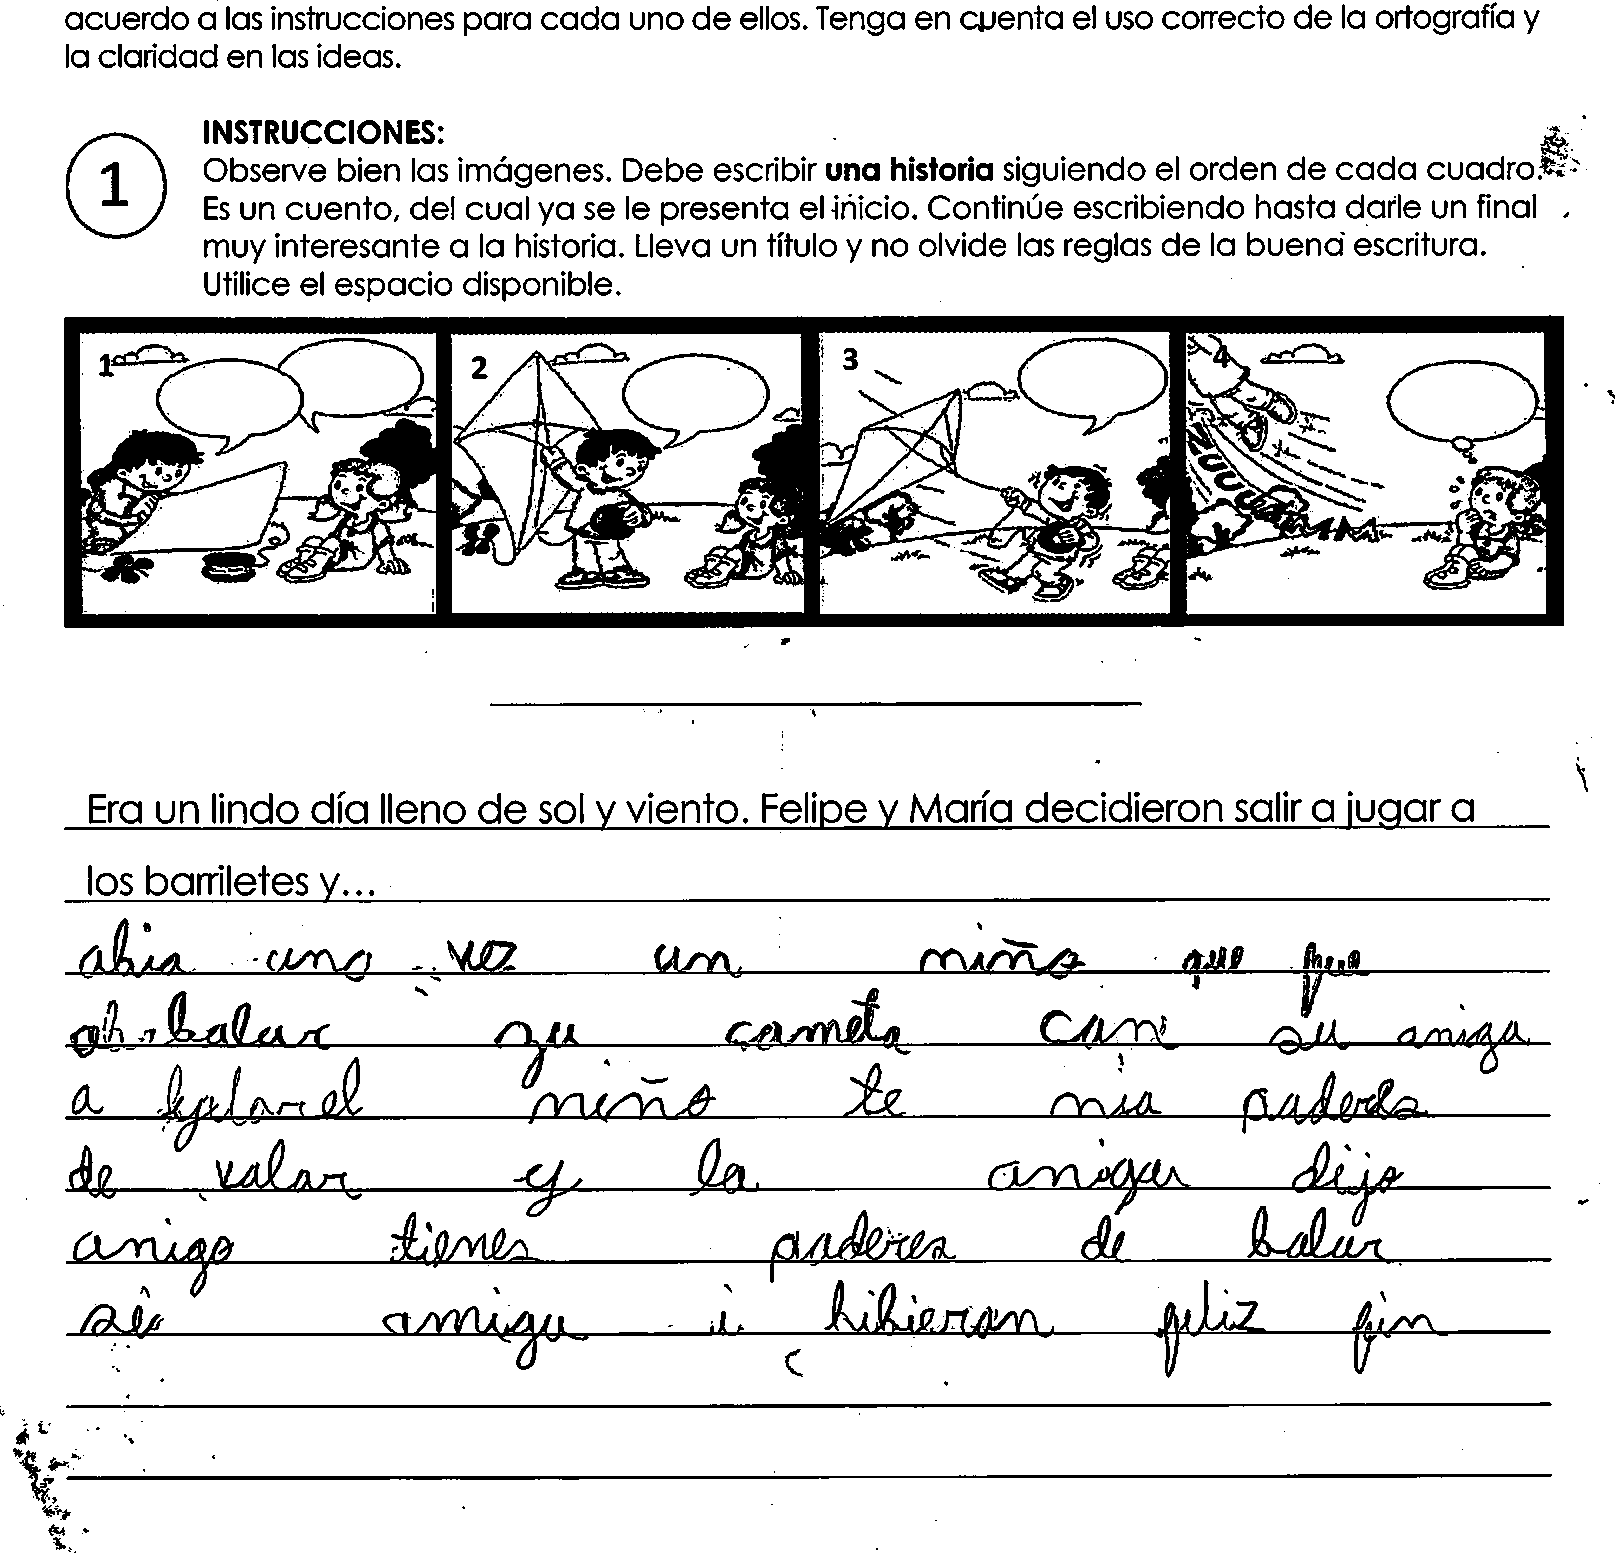 acuerdo a las instrucciones para cada uno de ellos. Tenga en cuenta el uso correcto de la ortografía y
la claridad en las ideas.
1
INSTRUCCIONES:
Observe bien las imágenes. Debe escribir una historia siguiendo el orden de cada cuadro.
Es un cuento, del cual ya se le presenta el inicio. Continúe escribiendo hasta darle un final
muy interesante a la historia. Lleva un título y no olvide las reglas de la buena escritura.
Utilice el espacio disponible.
1 2 3 4
Era un lindo día lleno de sol y viento. Felipe y María decidieron salir a jugar a
los barriletes y...
abia una vez un niño que fue
balar zu cometa con su amiga
a el niño te nia poderes
de valar y la amiga dijo
amigo tienes poderes de balar
si amiga i bibieron feliz fin